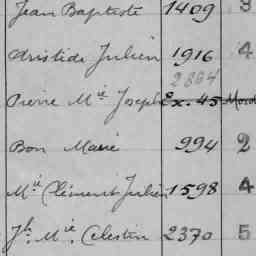 Jean Baptiste 1409 3
Aristide Julien 1916 4
2864
Pierre Mie Joseph Ex. 45 Mord
Bon Marie 994 2
Mie Clément Julien 1598 4
Jh. Mie. Celestin 2370 5